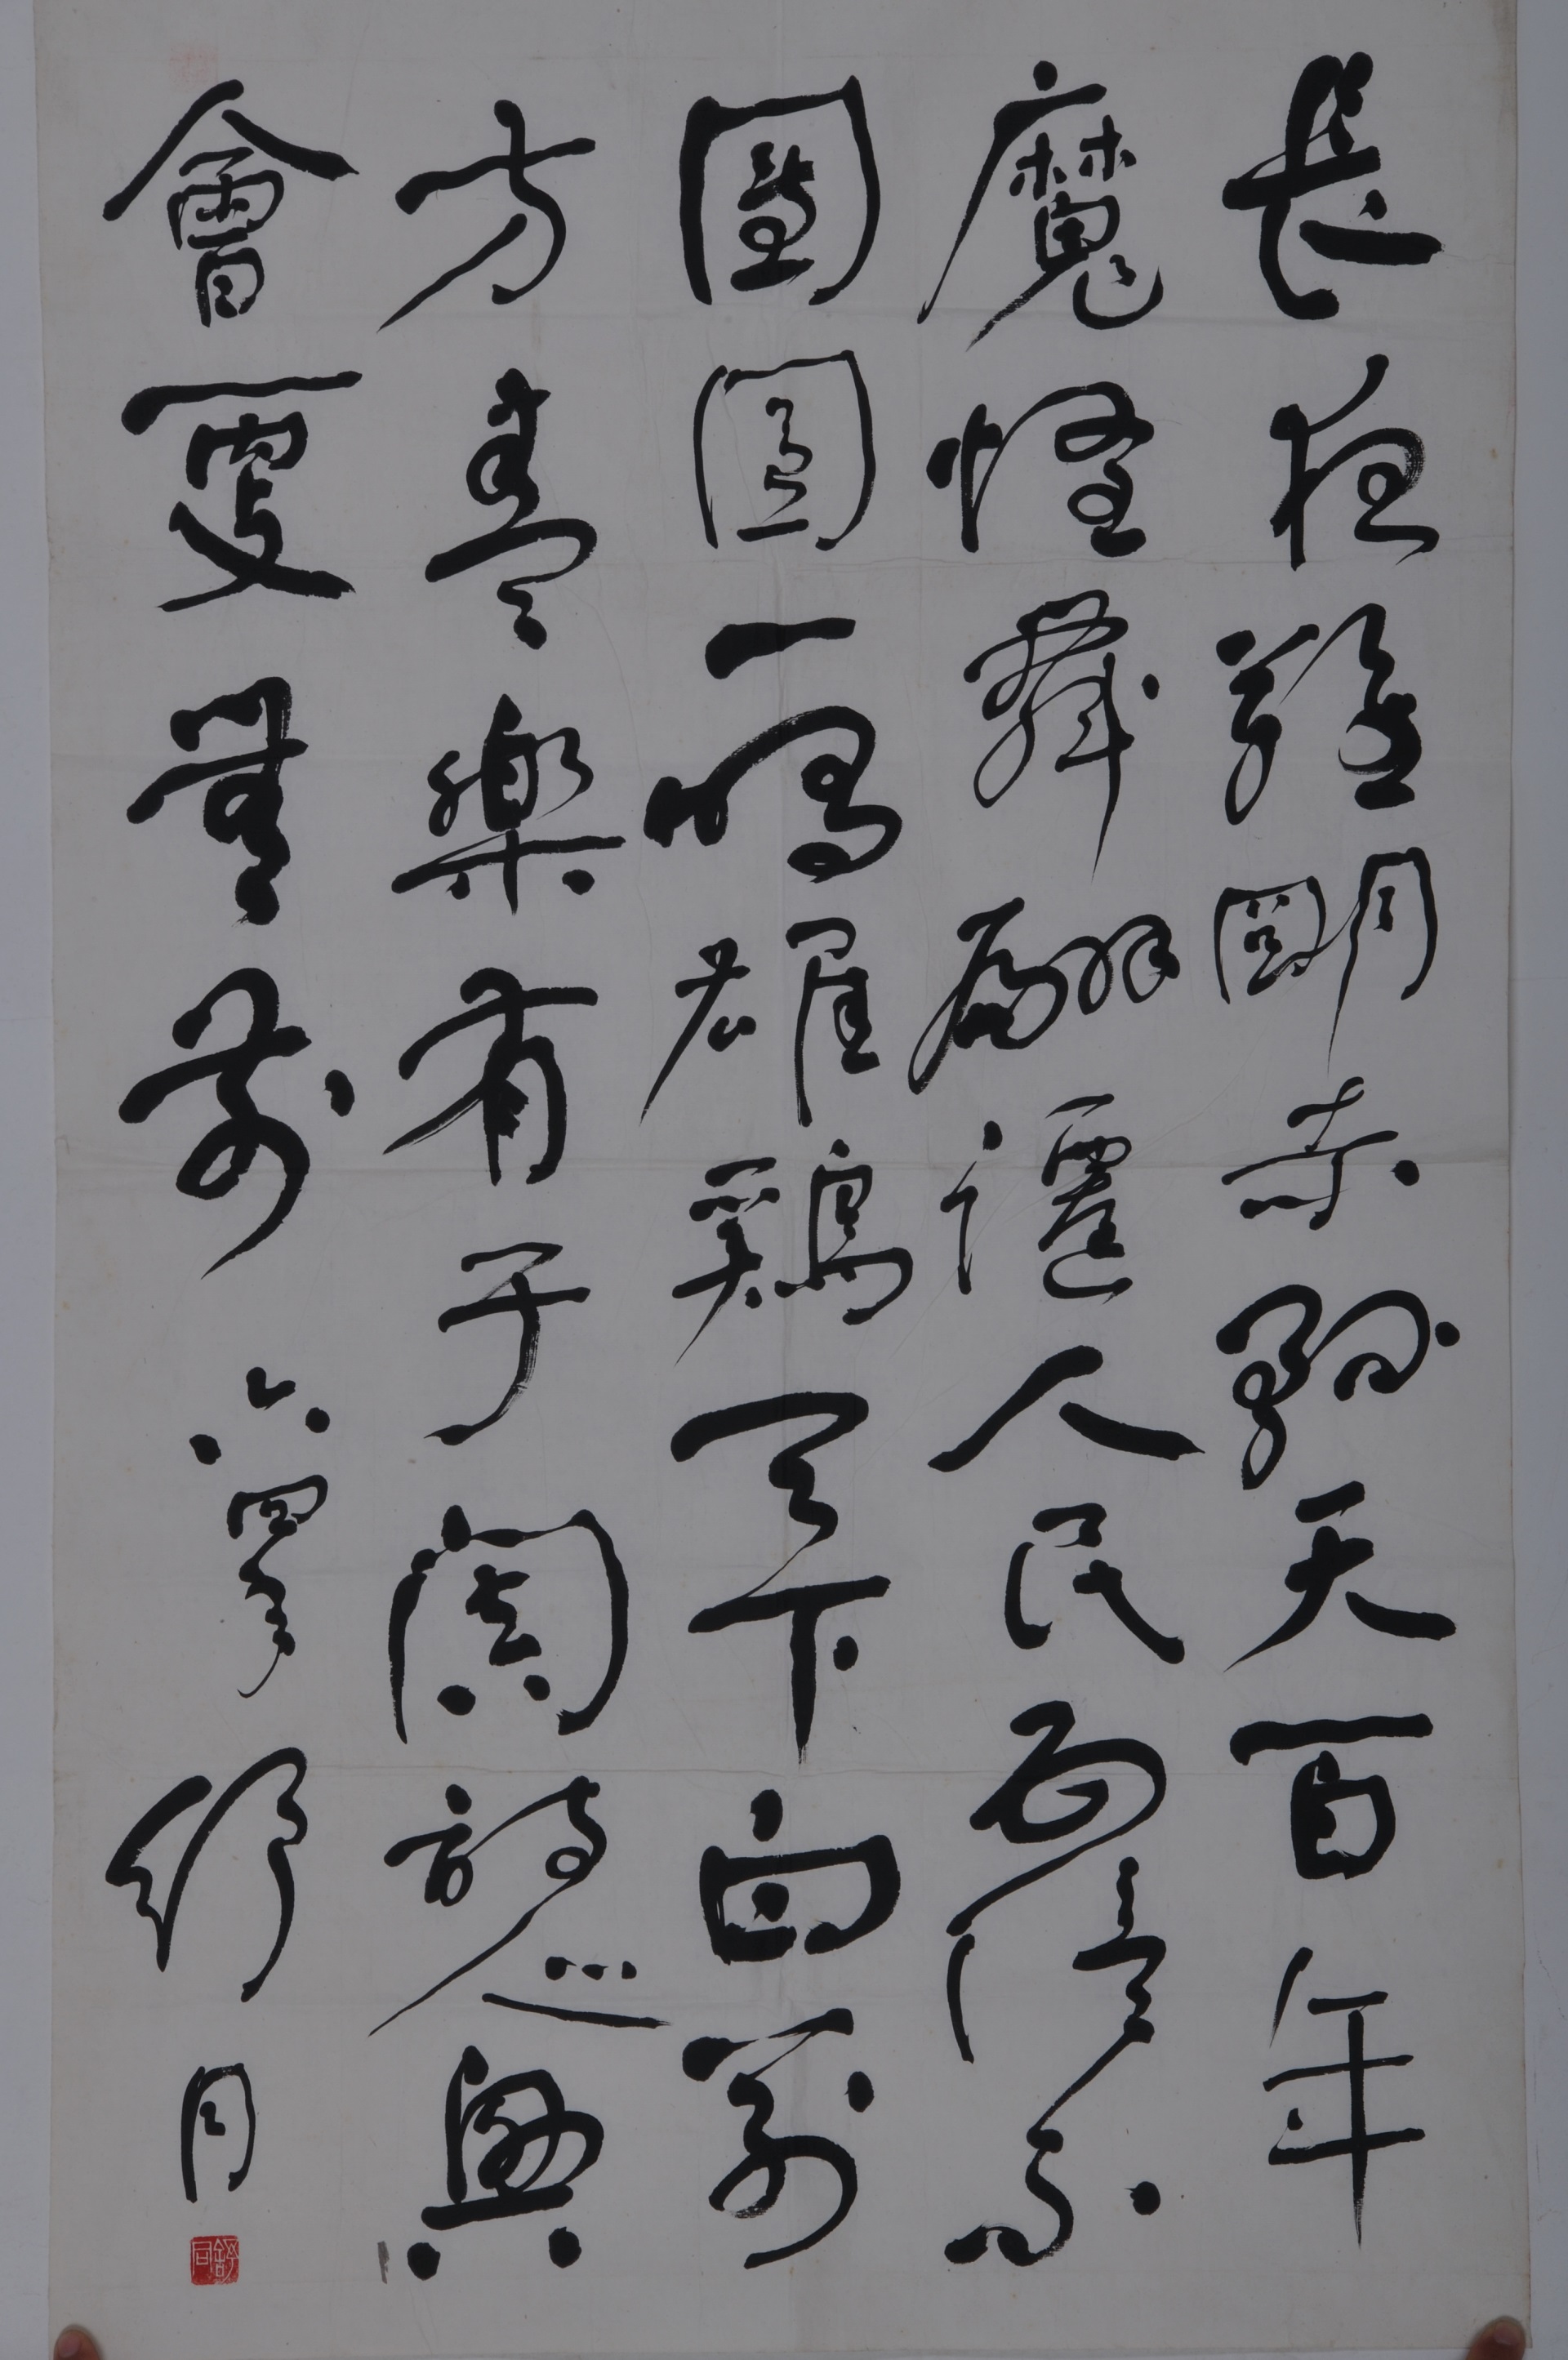 長夜難明赤縣天百年
魔怪舞翩躚人民五億不
團圓一唱雄鷄天下白萬
方奏樂有于闐詩人興
會更無前 六四年 舒同
舒同